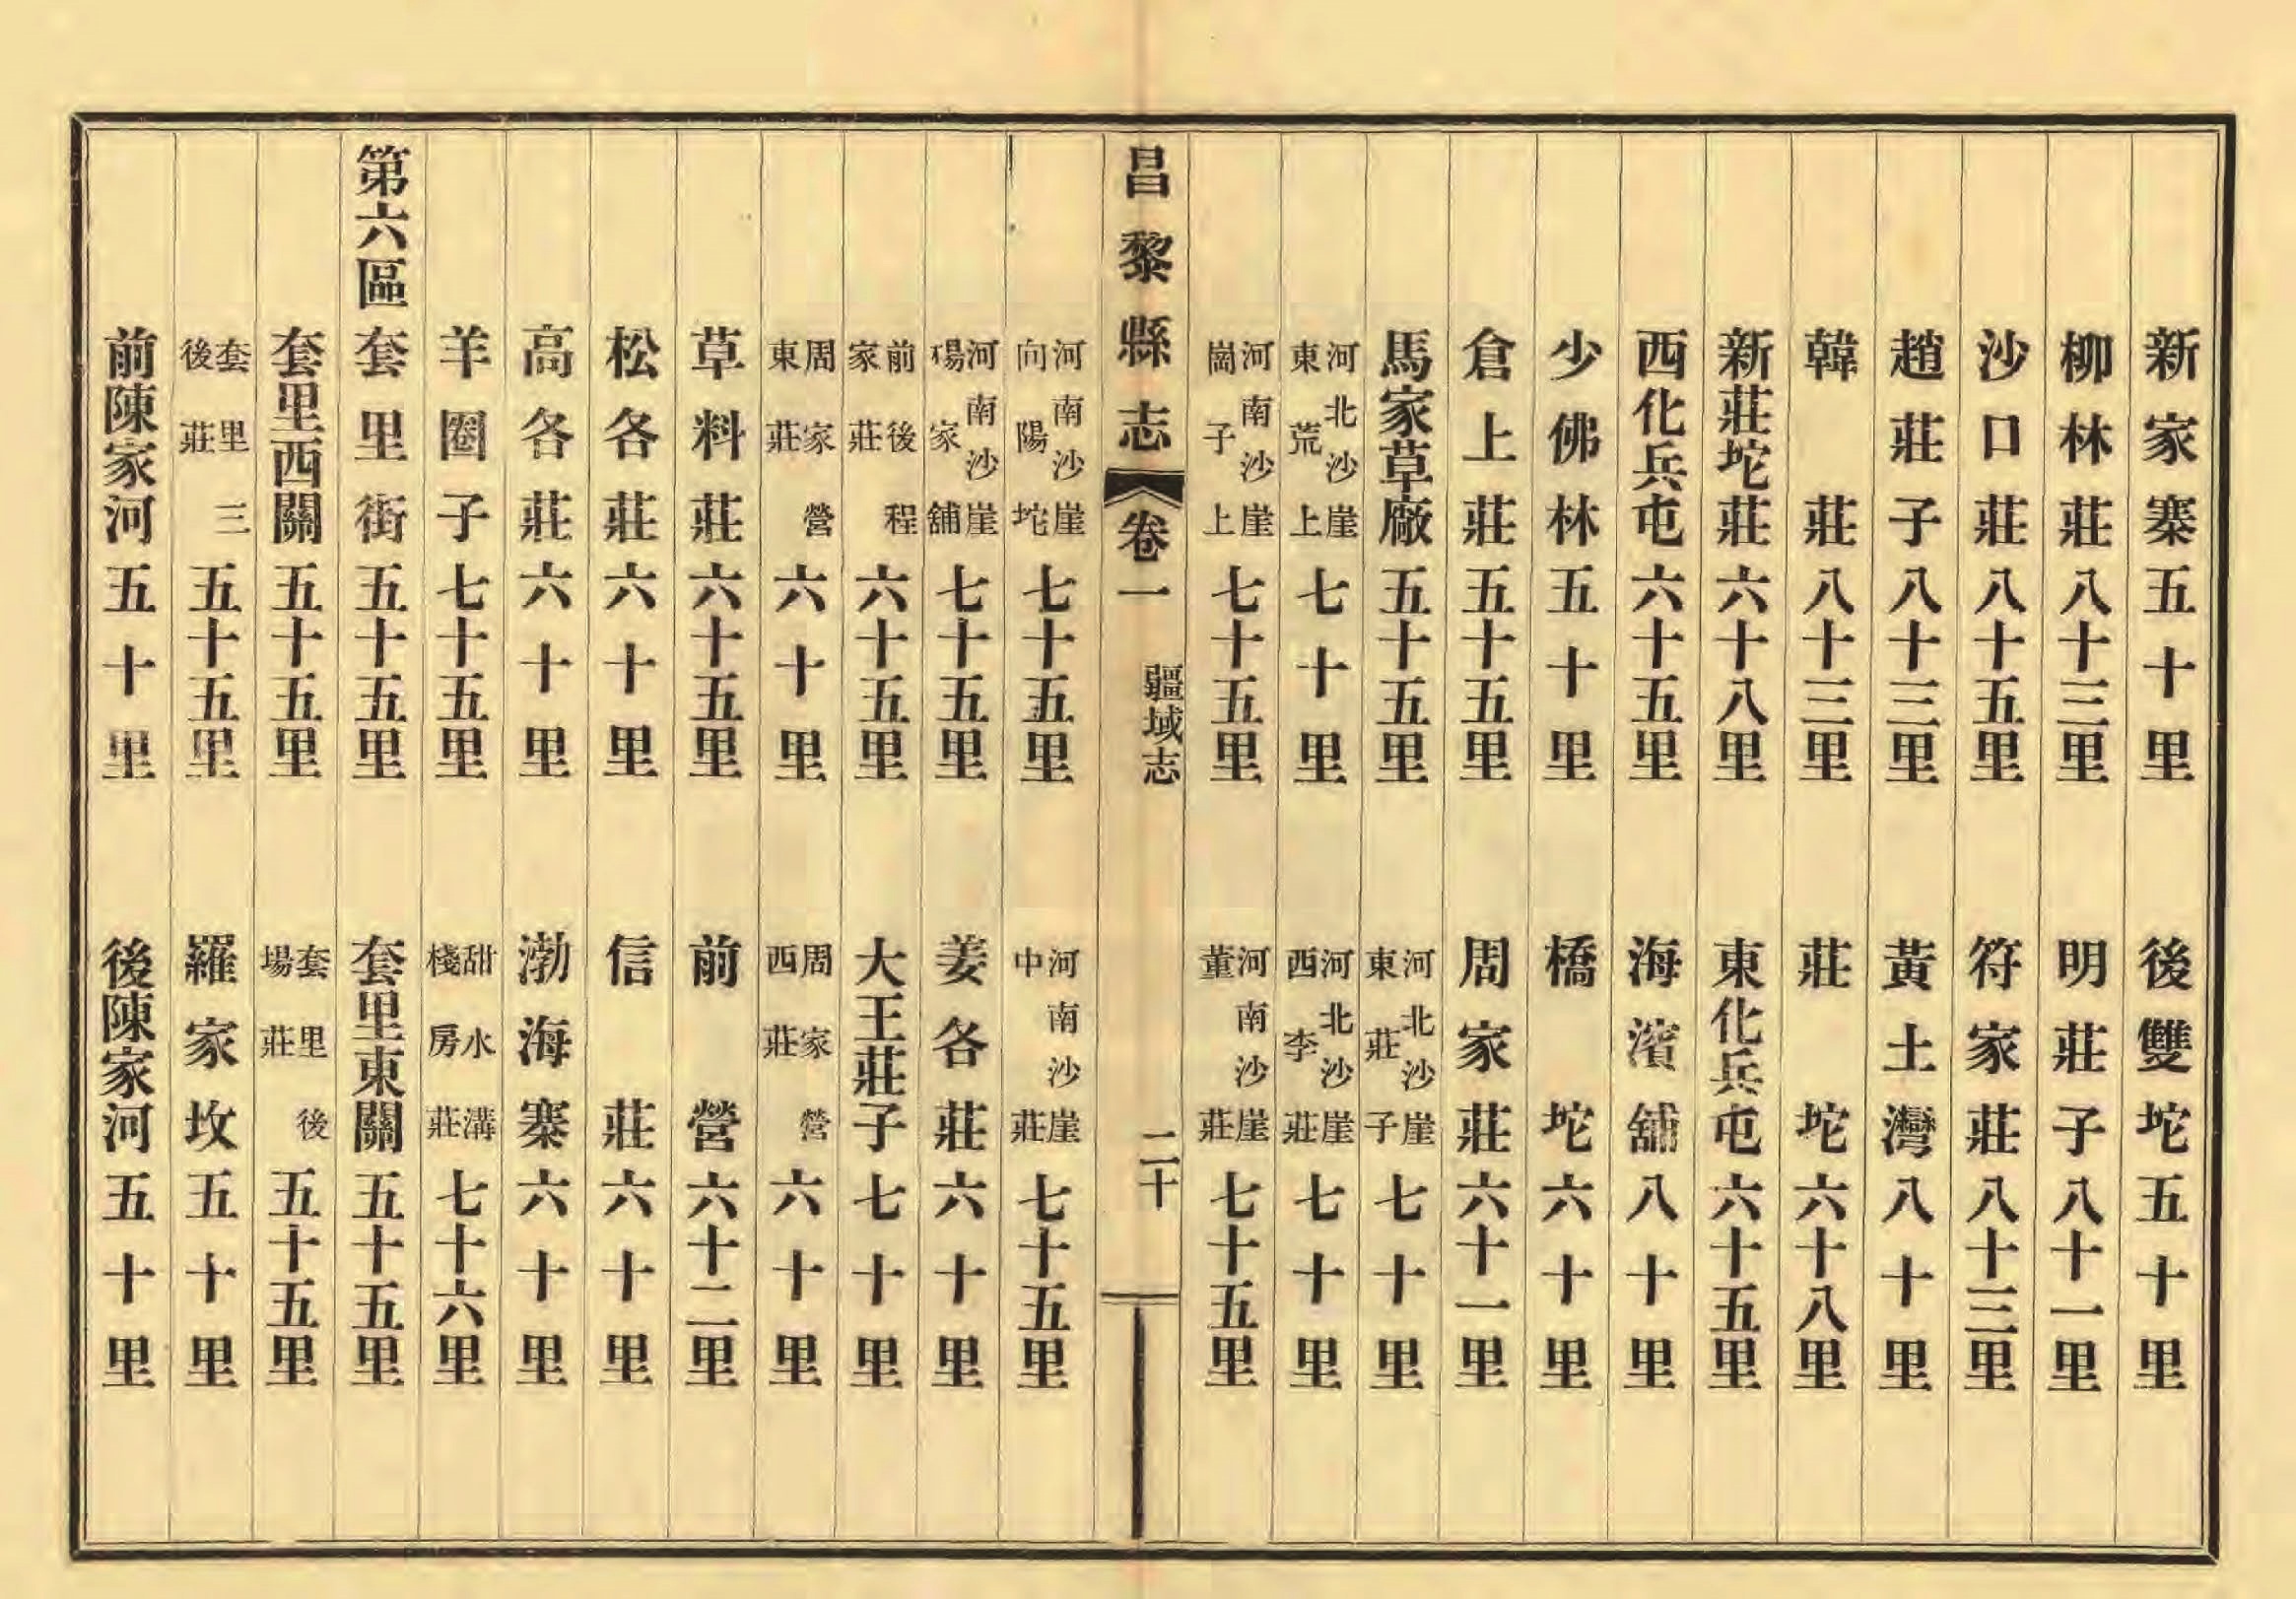 新家寨五十里　後雙坨五十里
柳林莊八十三里　明莊子八十一里
沙口莊八十五里　符家莊八十三里
趙莊子八十三里　黃土灣八十里
韓莊八十三里　莊坨六十八里
新莊坨莊六十八里　東化兵屯六十五里
西化兵屯六十五里　海濱舖八十里
少佛林五十里　橋坨六十里
倉上莊五十五里　周家莊六十一里
馬家草廠五十五里　河北沙崖東莊子七十里
河北沙崖東荒上七十里　河北沙崖西李莊七十里
河南沙崖崗子上七十五里　河南沙崖董莊七十五里
昌黎縣志　卷一　疆域志　二十
河南沙崖向陽坨七十五里　河南沙崖中莊七十五里
河南沙崖楊家舖七十五里　姜各莊六十里
前後程家莊六十五里　大王莊子七十里
周家營東莊六十里　周家營西莊六十里
草料莊六十五里　前營六十二里
松各莊六十里　信莊六十里
高各莊六十里　渤海寨六十里
羊圈子七十五里　甜水溝棧房莊七十六里
第六區　套里街五十五里　套里東關五十五里
套里西關五十五里　套里後場莊五十五里
套里三後莊五十五里　羅家坟五十里
前陳家河五十里　後陳家河五十里